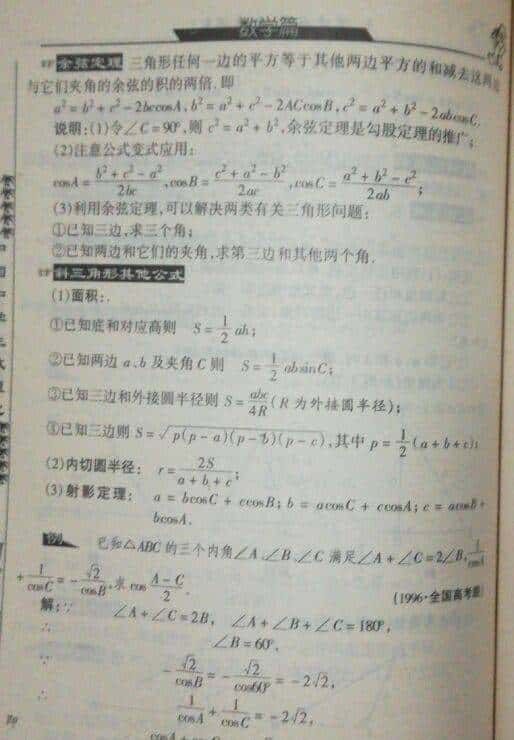 数学篇
余弦定理 三角形任何一边的平方等于其他两边平方的和减去这两边
与它们夹角的余弦的积的两倍.即
a²=b²+c²-2bccosA,b²=a²+c²-2ACcosB,c²=a²+b²-2abcosC.
说明:(1)令∠C=90°,则c²=a²+b²,余弦定理是勾股定理的推广;
(2)注意公式变式应用:
cosA=(b²+c²-a²)/2bc,cosB=(c²+a²-b²)/2ac,cosC=(a²+b²-c²)/2ab;
(3)利用余弦定理,可以解决两类有关三角形问题:
①已知三边,求三个角;
②已知两边和它们的夹角,求第三边和其他两个角.
斜三角形其他公式
(1)面积:.
①已知底和对应高则 S=1/2 ah;
②已知两边a、b及夹角C则 S=1/2 absinC;
③已知三边和外接圆半径则S=abc/4R(R为外接圆半径);
④已知三边则S=√p(p-a)(p-b)(p-c),其中p=1/2(a+b+c);
(2)内切圆半径: r=2S/(a+b+c);
(3)射影定理: a=bcosC+ccosB;b=acosC+ccosA;c=acosB+
bcosA.
例 已知△ABC的三个内角∠A、∠B、∠C满足∠A+∠C=2∠B,1/cosA
+1/cosC=-√2/cosB,求cos (A-C)/2.
(1996·全国高考题)
解:∵ ∠A+∠C=2B, ∠A+∠B+∠C=180°,
∴ ∠B=60°,
∵ -√2/cosB=-√2/cos60°=-2√2,
∴ 1/cosA+1/cosC=-2√2,